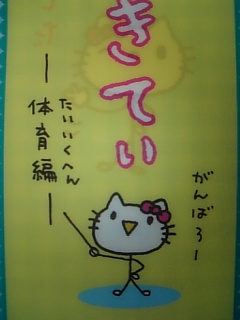 きてぃ
がんばろー
たいいくへん
—体育編—